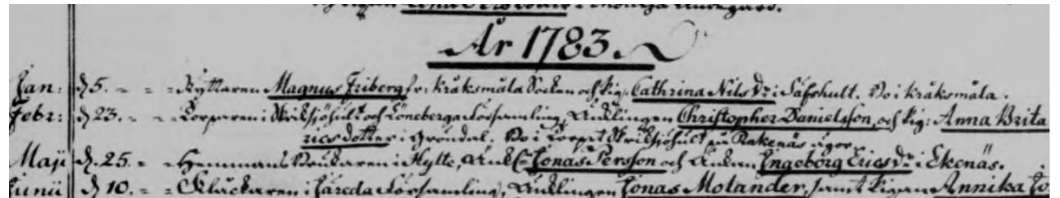 År 1783.
Jan: d. 5. - - Ryttaren Magnus Friberg fr: Kråksmåla Socken och Pig: Cathrina Nils Dr i Säfshult. Bo i Kråksmåla.
Febr: d. 23. - - Torparen i Löneberga Församling, Änklingen Christopher Danielsson, och Pig: Anna Brita
ricsdotter i Gröndal. Bo i Torpet på Rakenäs ägor
Maji d. 25. - Hemmans Brukaren i Hylte, Jonas Persson och Änkan Ingeborg Erics Dr i Ekenäs.
Junii d. 10. - - Klåckaren i Järeda Församling, Änklingen Jonas Molander, samt Pigan Annika Jo